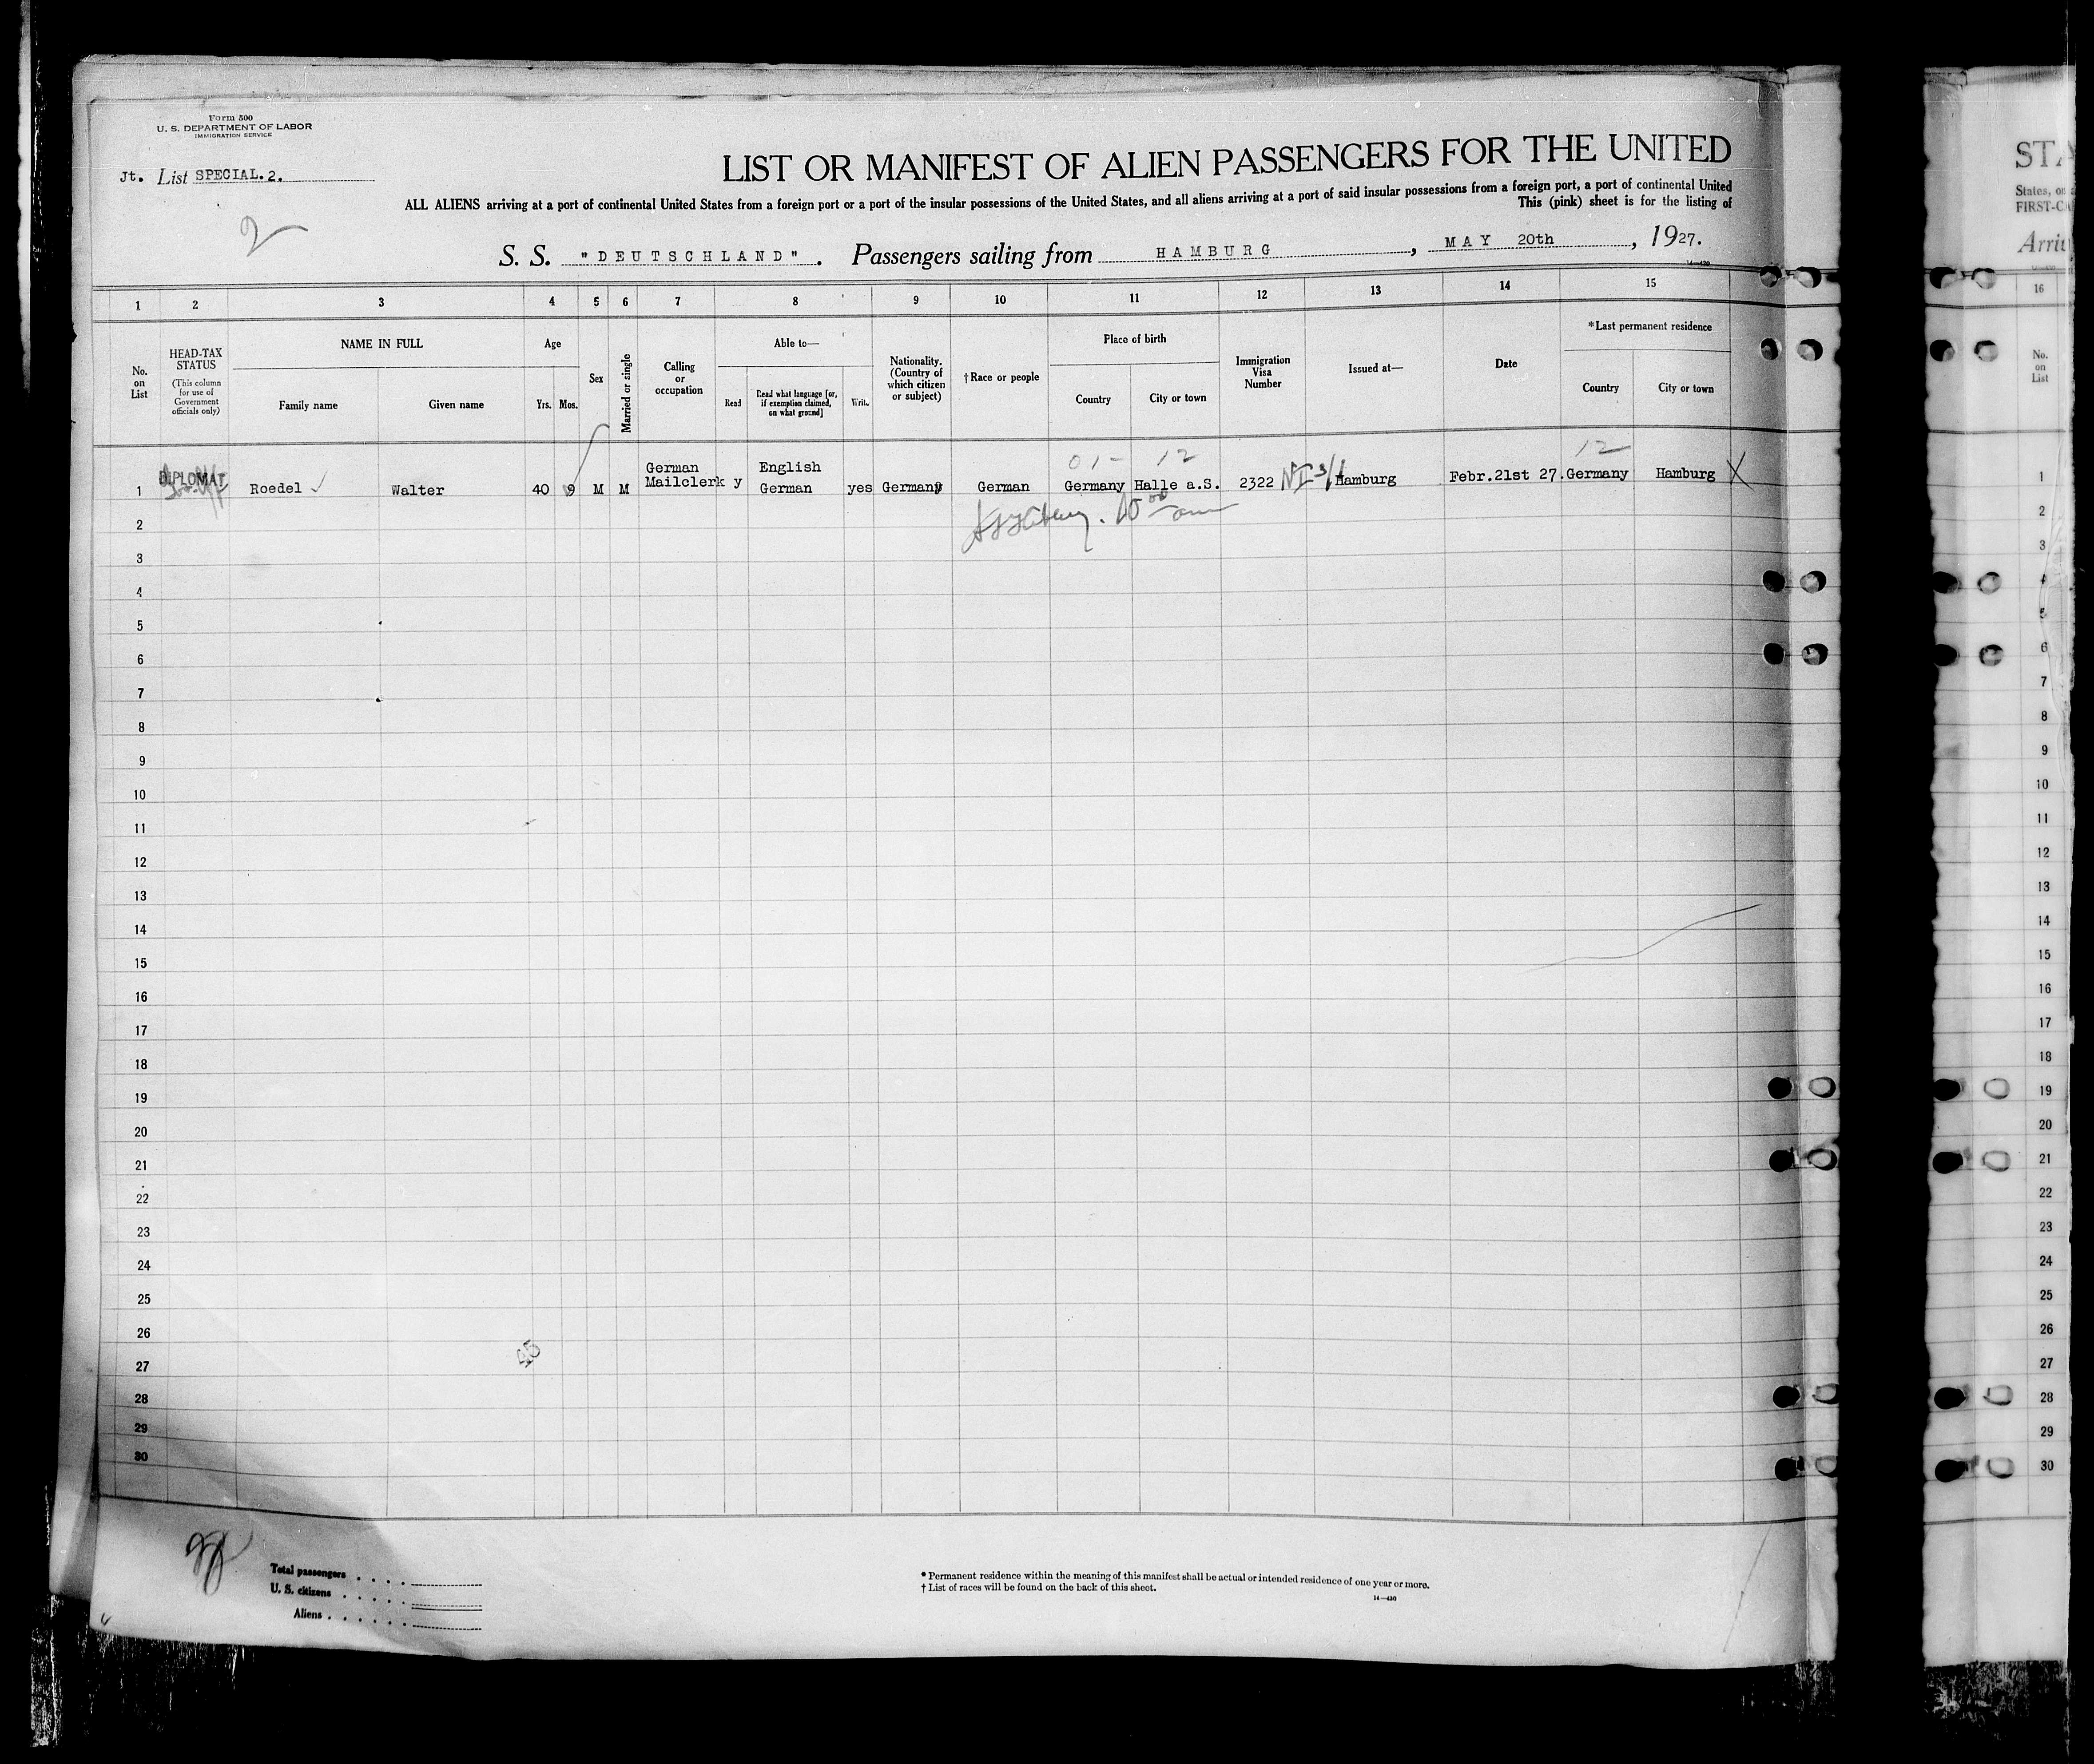 Form 500
U. S. DEPARTMENT OF LABOR
IMMIGRATION SERVICE
Jt. List SPECIAL.2.
2
LIST OR MANIFEST OF ALIEN PASSENGERS FOR THE UNITED
ALL ALIENS arriving at a port of continental United States from a foreign port or a port of the insular possessions of the United States, and all aliens arriving at a port of said insular possessions from a foreign port, a port of continental United
This (pink) sheet is for the listing of
S. S. "DEUTSCHLAND". Passengers sailing from HAMBURG, MAY 20th, 1927.
1 2 3 4 5 6 7 8 9 10 11 12 13 14 15
No. on List
HEAD-TAX STATUS
(This column for use of Government officials only)
NAME IN FULL
Family name Given name
Age
Yrs. Mos.
Sex
Married or single
Calling or occupation
Able to—
Read
Read what language [or, if exemption claimed, on what ground]
Write
Nationality. (Country of which citizen or subject)
†Race or people
Place of birth
Country City or town
Immigration Visa Number
Issued at—
Date
*Last permanent residence
Country City or town
01- 12 12
DIPLOMAT German English
1 Roedel Walter 40 9 M M Mailclerk y German yes Germany German Germany Halle a.S. 2322 Hamburg Febr.21st 27. Germany Hamburg X
2
3
4
5
6
7
8
9
10
11
12
13
14
15
16
17
18
19
20
21
22
23
24
25
26
27
28
29
30
Total passengers
U. S. citizens
Aliens
* Permanent residence within the meaning of this manifest shall be actual or intended residence of one year or more.
† List of races will be found on the back of this sheet.
14—430
STA
States, or
FIRST-C
Arri
16
No. on List
1
2
3
4
5
6
7
8
9
10
11
12
13
14
15
16
17
18
19
20
21
22
23
24
25
26
27
28
29
30